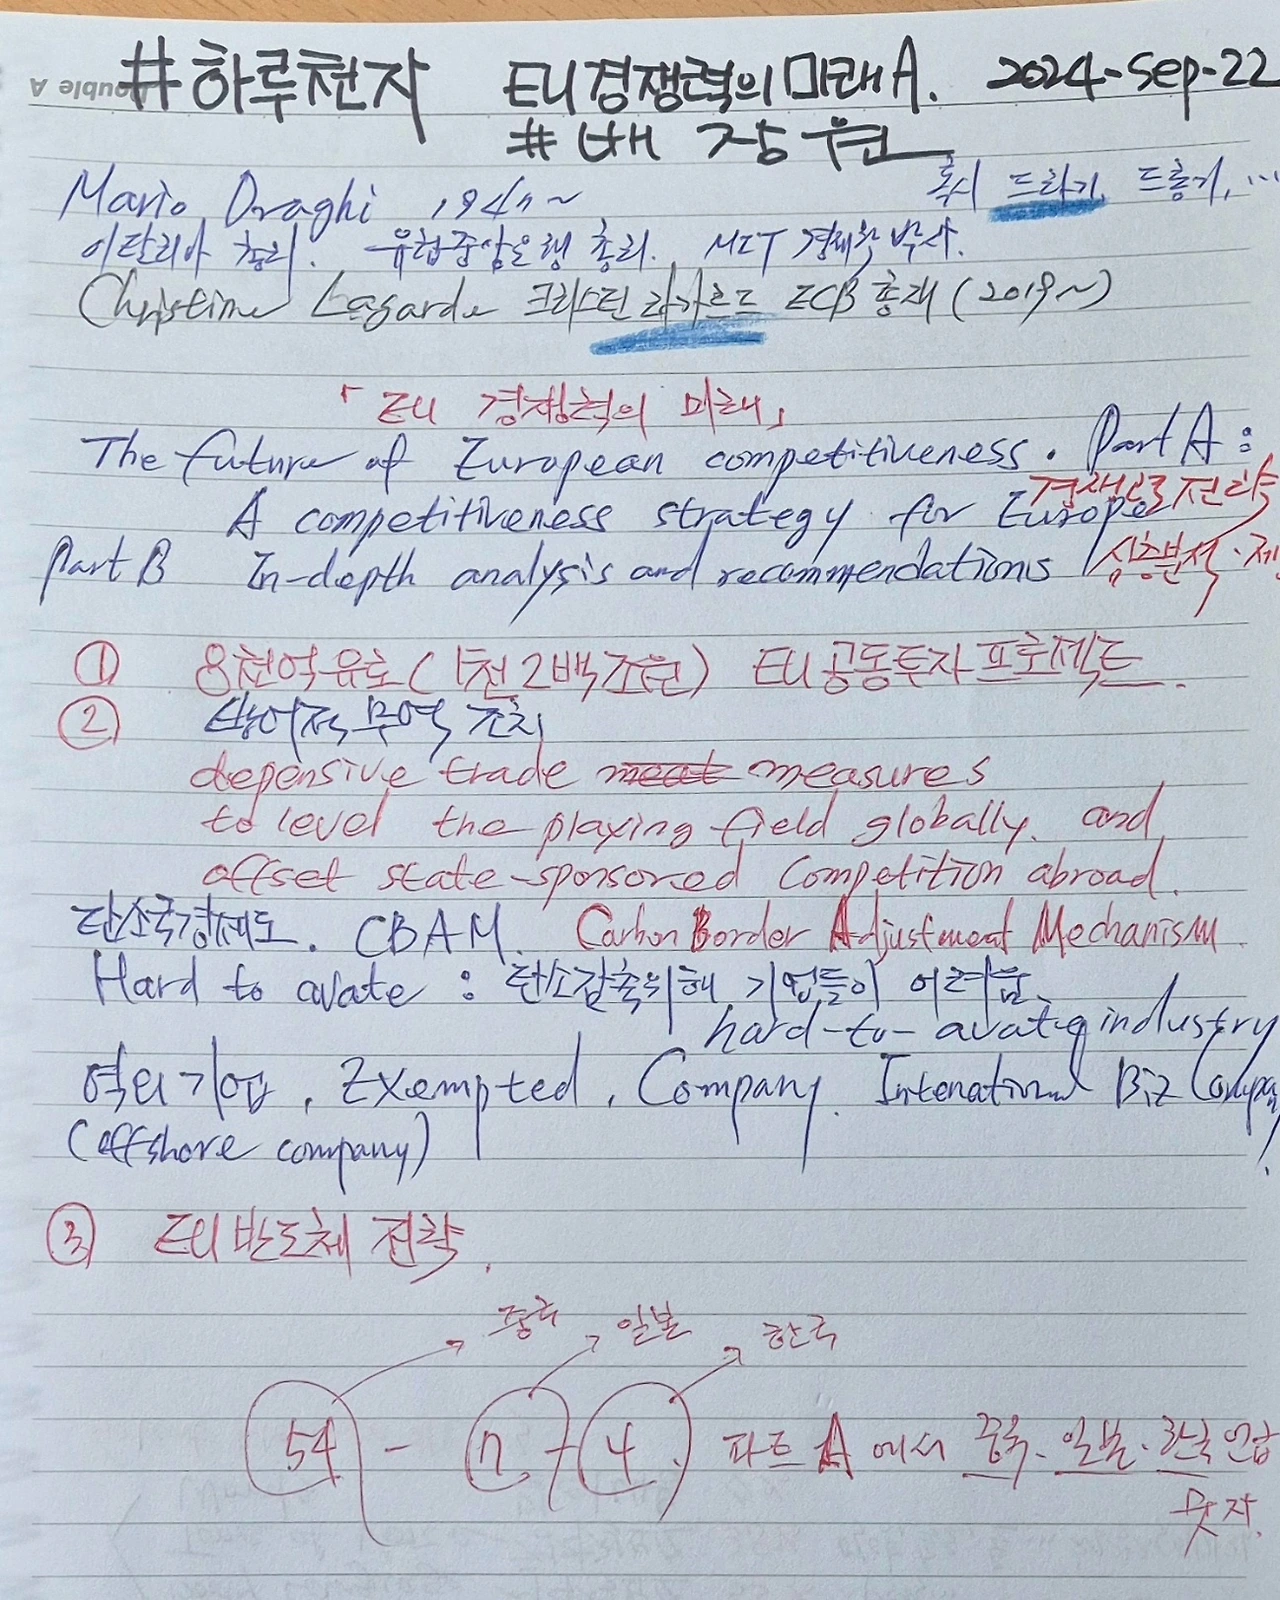 #하루천자 EU경쟁력의미래A. 2024-Sep-22
Double A
#배 장 원
Mario Draghi 194n~ 혹시 드라기, 드롱기, ...
이탈리아 총리. 유럽중앙은행 총리. MIT 경제학 박사.
Christine Lagarde 크리스틴 라가르드 ECB 총재 (2019~)
「EU 경쟁력의 미래」
The future of European competitiveness. Part A:
경쟁력 전략
A competitiveness strategy for Europe
Part B In-depth analysis and recommendations 심층분석·제
① 8천억유로(1천2백조원) EU공동투자프로젝트.
② 방어적 무역 조치
depensive trade meat measures
to level the playing field globally, and
offset state-sponsored Competition abroad.
탄소국경세도. CBAM. Carbon Border Adjustment Mechanism.
Hard to avate : 탄소감축위해 기업들이 어려움.
hard-to-avate industry
역외기업, Exempted, Company. Intenational Biz Compan
(offshore company)
③ EU반도체 전략.
중국 일본 한국
54 - n - 4. 파트 A에서 중국. 일본. 한국 언급
숫자.